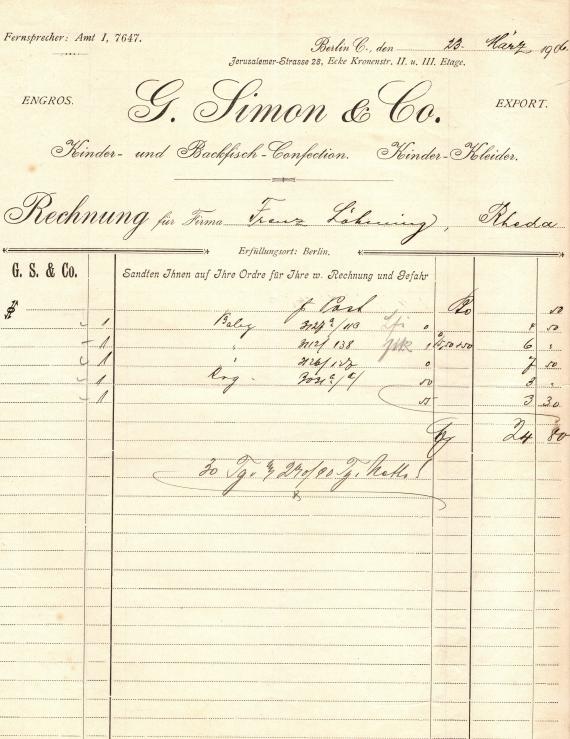 Fernsprecher: Amt I, 7647.
Berlin C., den 23. März 190
Jerusalemer-Strasse 28, Ecke Kronenstr. II. u. III. Etage.
ENGROS. G. Simon & Co. EXPORT.
Kinder- und Backfisch-Confection. Kinder-Kleider.
Rechnung für Firma Franz Löhning, Rheda
Erfüllungsort: Berlin.
G. S. & Co. Sandten Ihnen auf Ihre Ordre für Ihre w. Rechnung und Gefahr
p. Post Po 50
1 4 50
1 138 6 "
1 7 50
1 50 3 "
1 55 3 30
24 80
30 Tg. 2% 90 Tg. Netto!